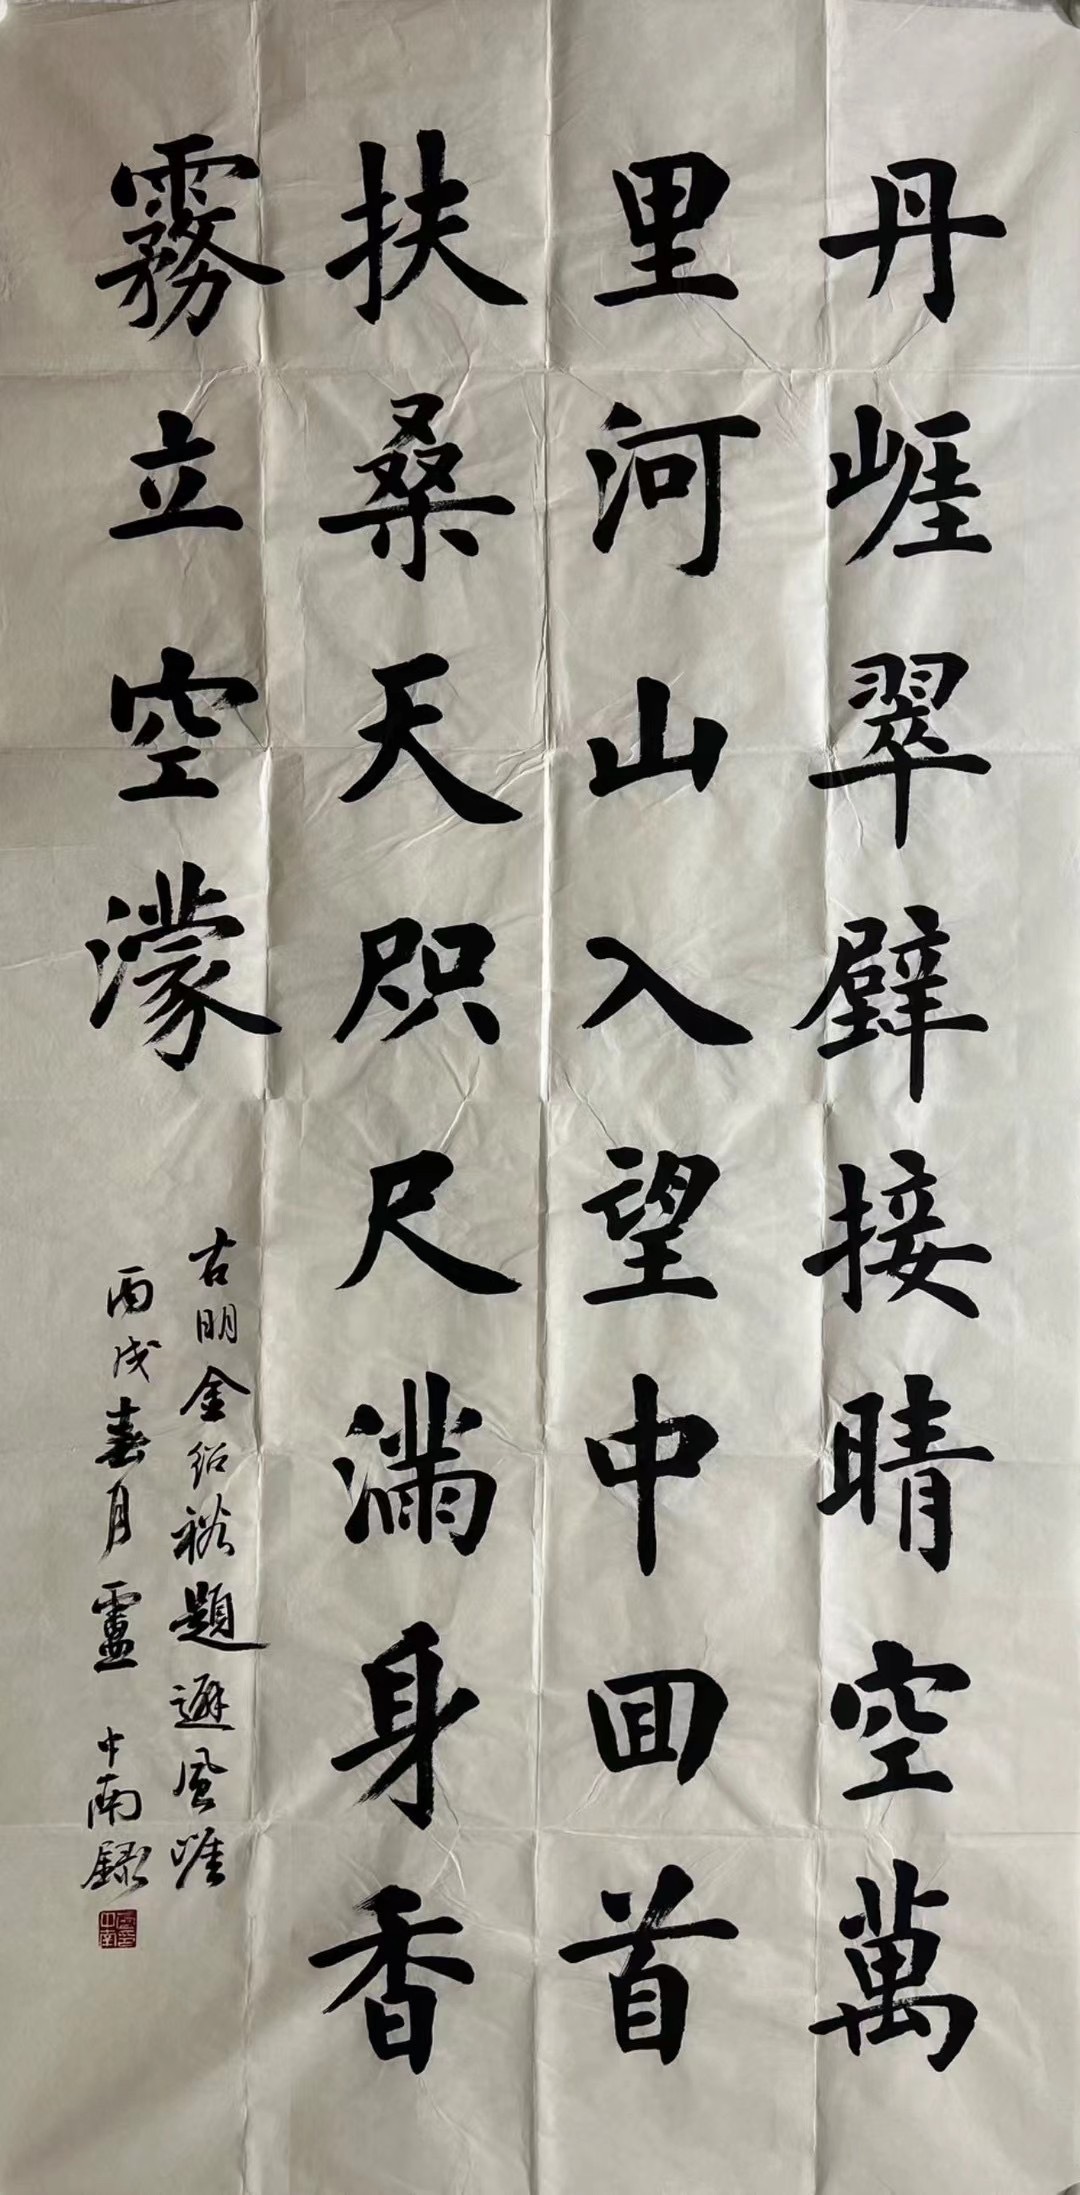 丹崕翠壁接晴空萬
里河山入望中回首
扶桑天咫尺满身香
霧立空濛
古明金绍裕題避风崖
丙戌春月盧中南録